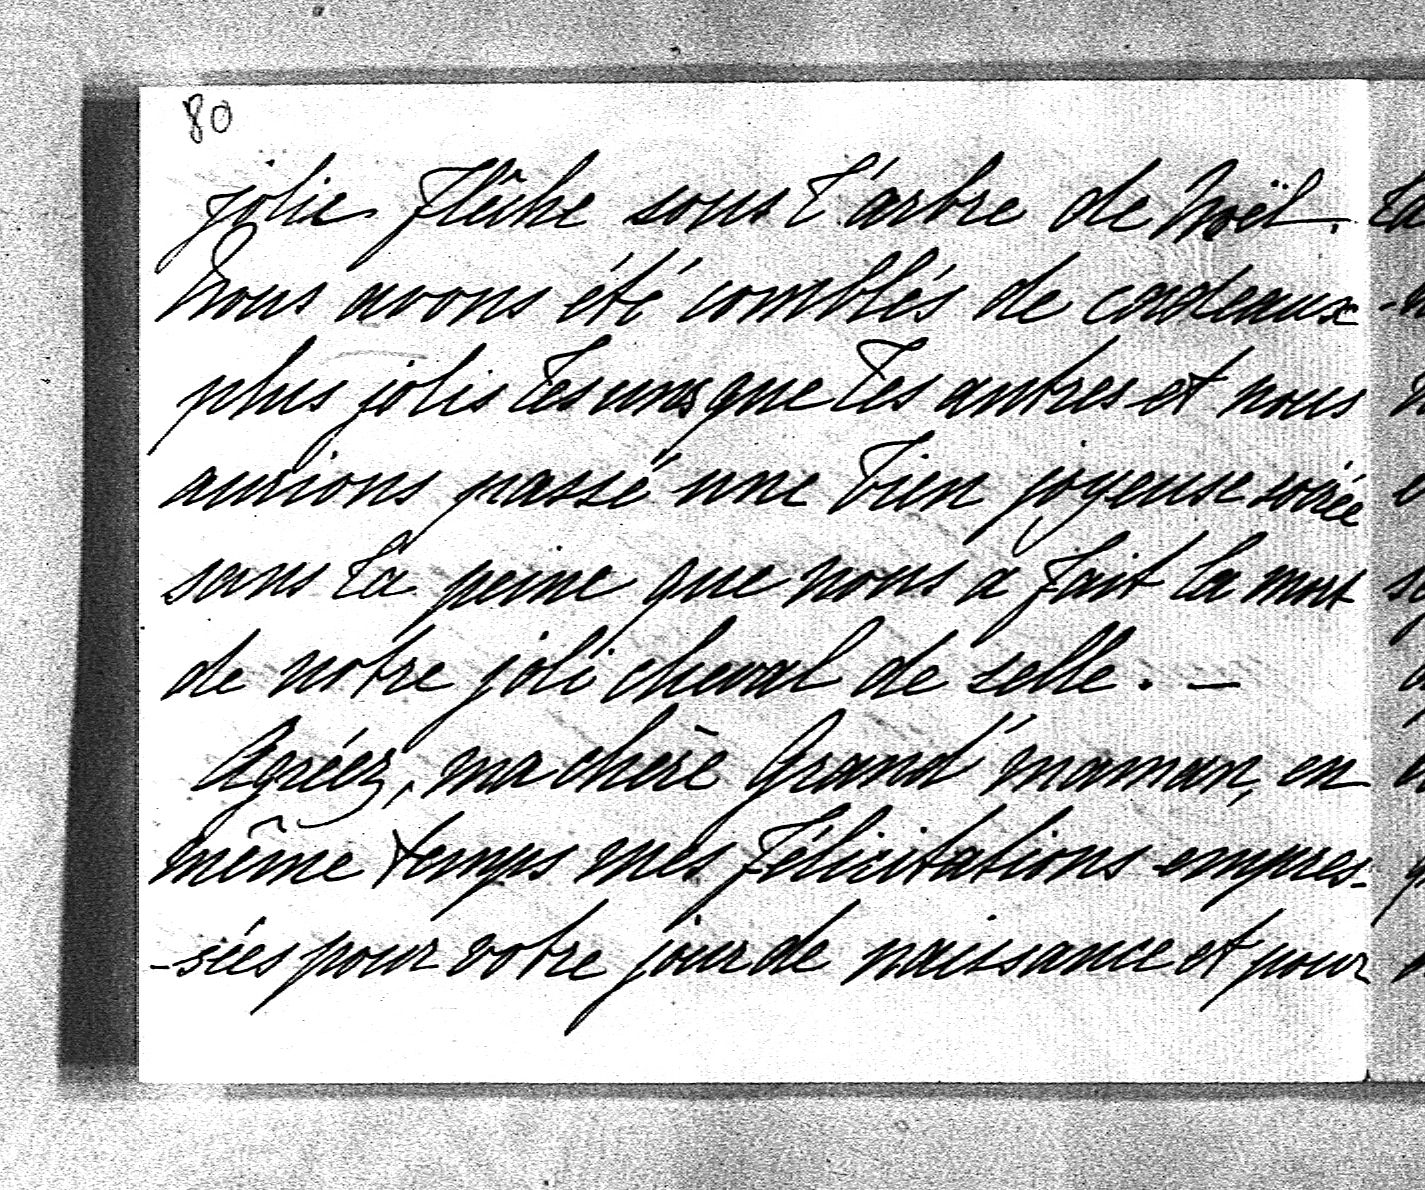 80
jolie flêche sous l'arbre de Noël.
Nous avons été comblés de cadeaux
plus jolis les uns que les autres et nous
aurions passé une bien joyeuse soirée
sans la peine que nous a fait la mort
de notre joli cheval de selle. —
Agréez, ma chère Grand'maman, en
même temps mes félicitations empres-
-sées pour votre jour de naissance et pour